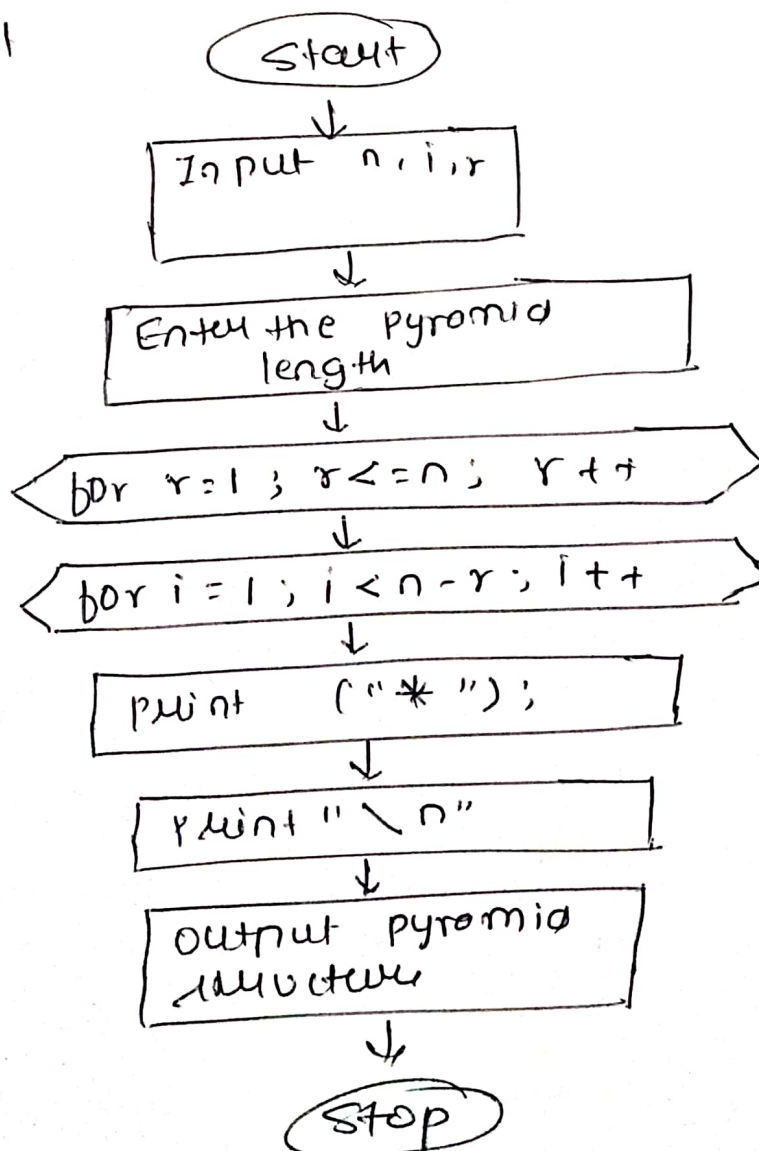 1
Start
Input n, i, r
Enter the pyramid
length
for r=1; r<=n; r++
for i=1; i<n-r; i++
print ("*");
print "\n"
output pyramid
structure
Stop